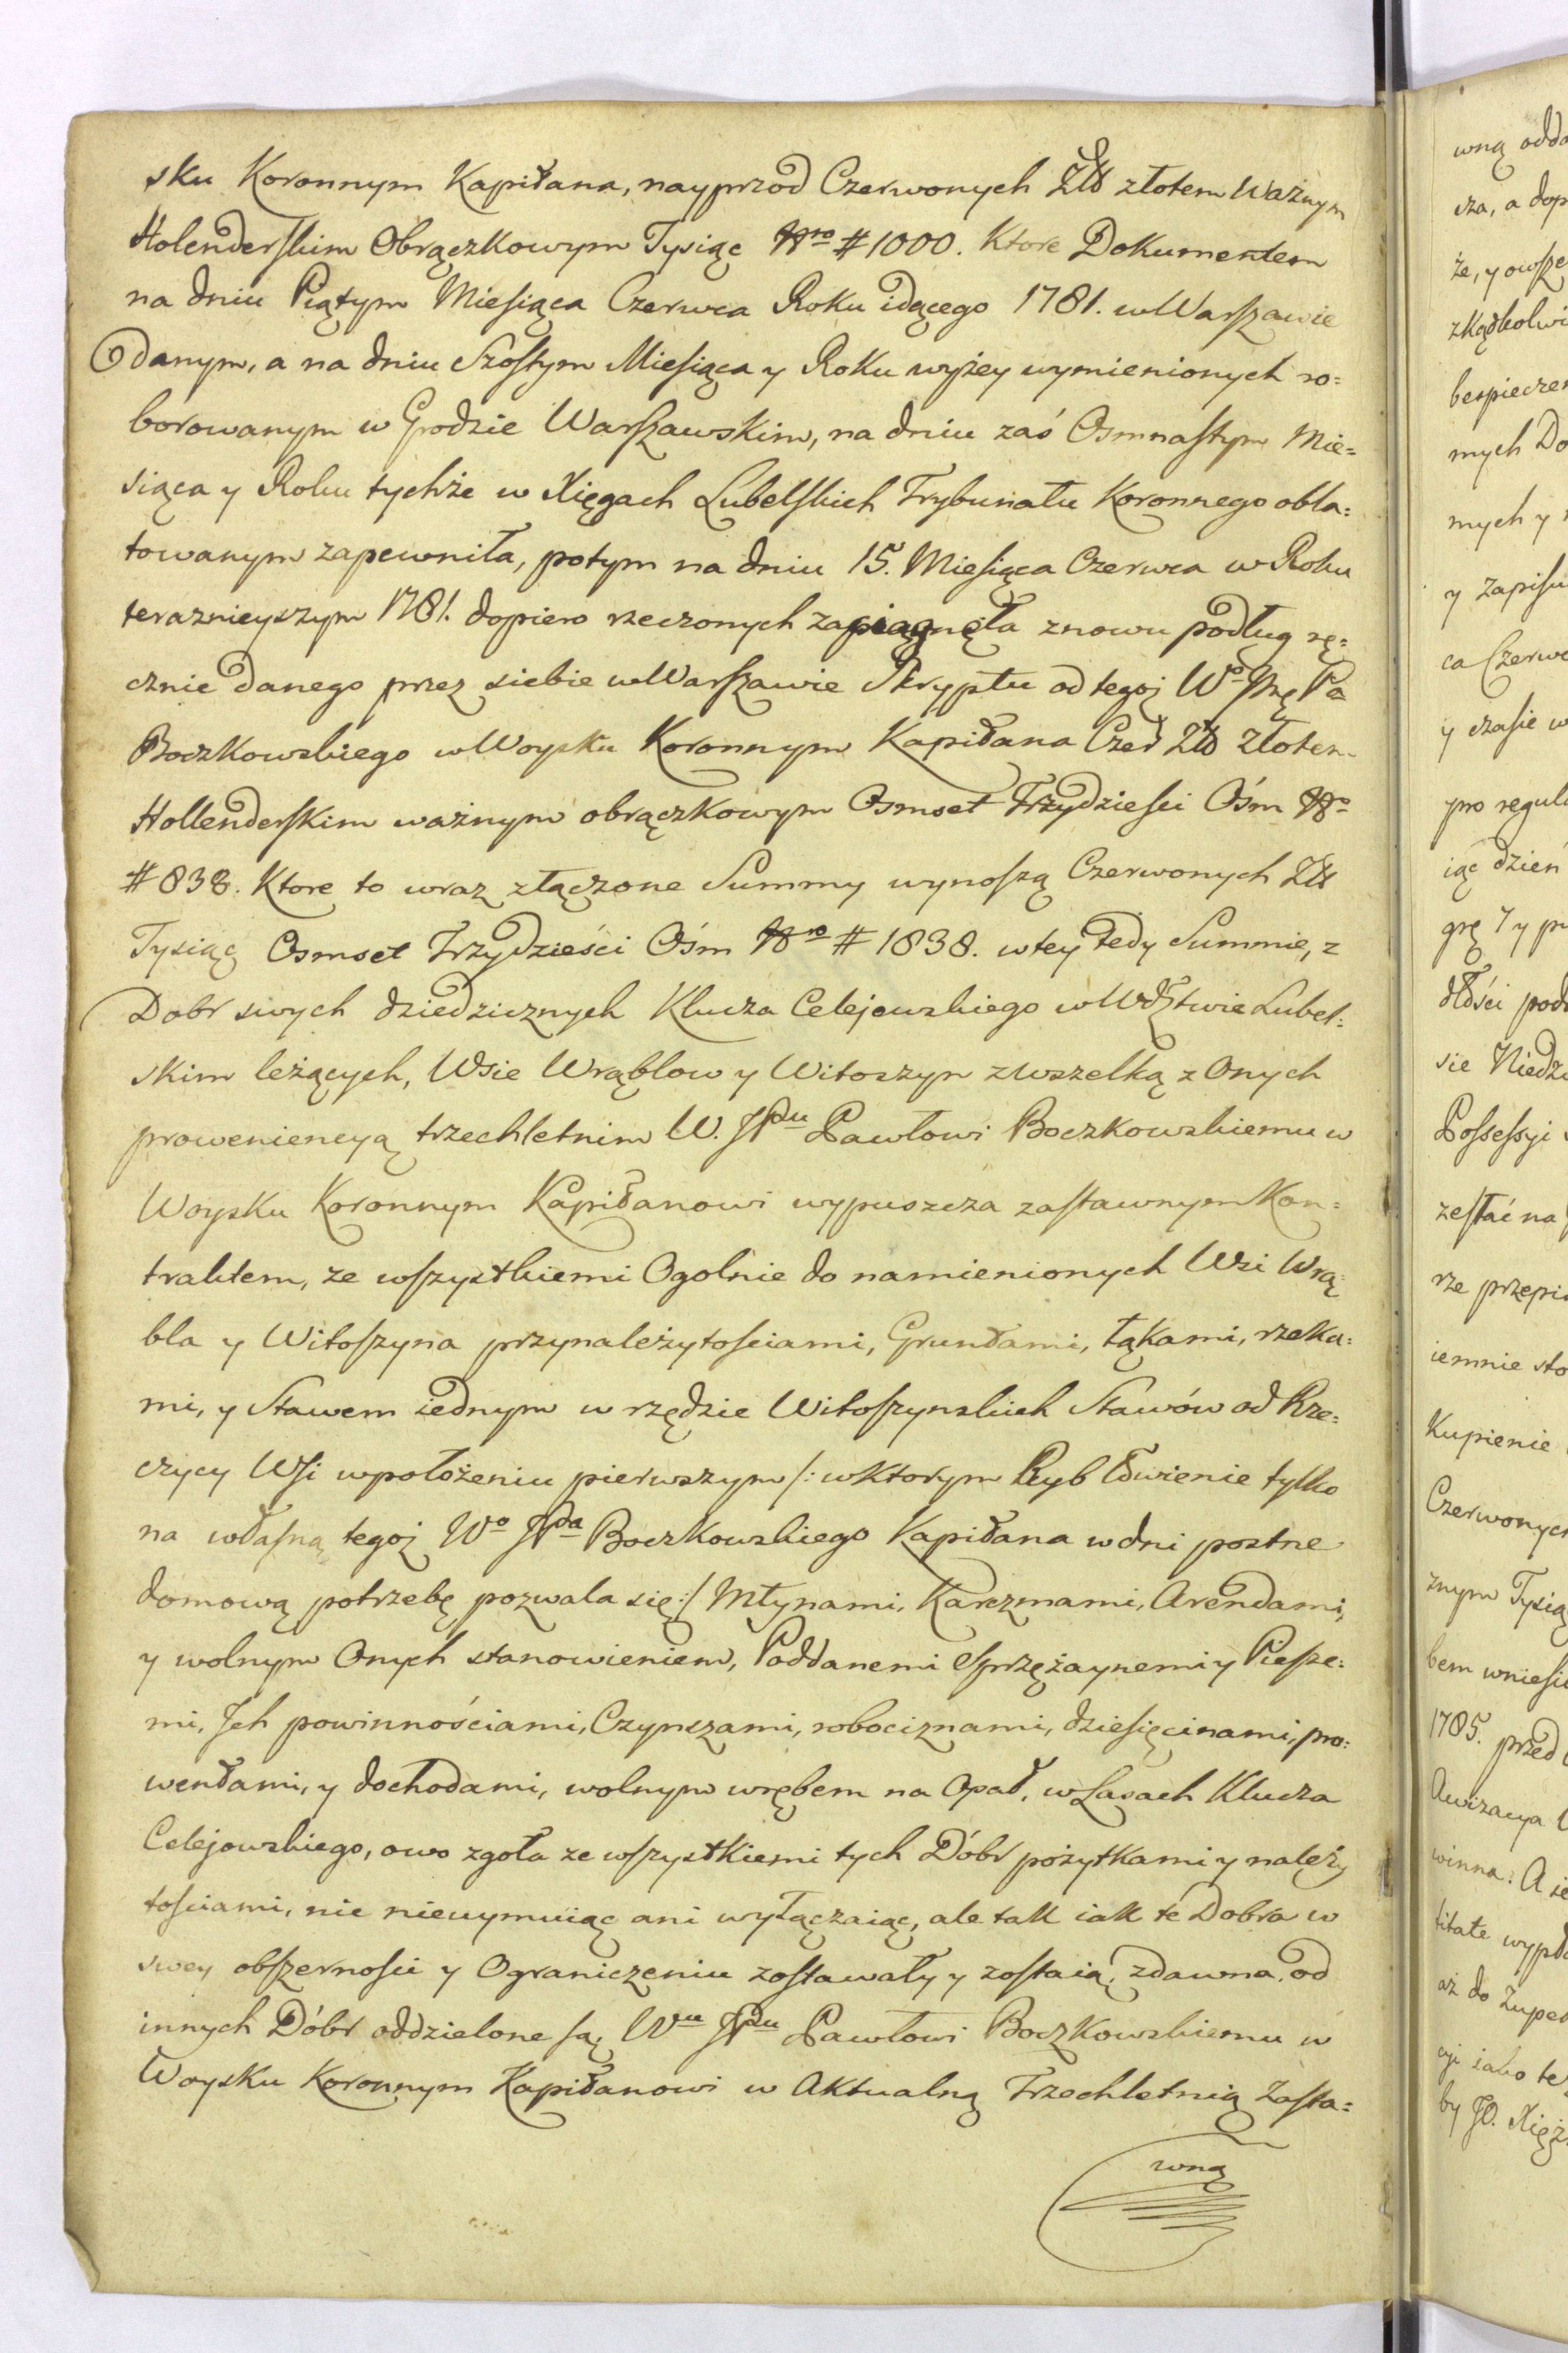 sku Koronnym Kapitana, nayprzod Czerwonych Złł złotem Ważnym
Holenderskim Obrączkowym Tysiąc Nro # 1000. Ktore Dokumentem
na dniu Piątym Miesiąca Czerwca Roku idącego 1781. w Warszawie
danym, a na dniu Szostym Miesiąca y Roku wyżey wymienionych ro=
borowanym w Grodzie Warszawskim, na dniu zaś Osmnastym Mie=
siąca y Roku tychże w Xięgach Lubelskich Trybunału Koronnego obla=
towanym zapewniła, potym na dniu 15. Miesiąca Czerwca w Roku
teraznieyszym 1781. dopiero rzeczonych zaciągnęła znowu podług rę=
cznie danego przez siebie w Warszawie Skryptu od tegoż Wo Pa
Boczkowskiego w Woysku Koronnym Kapitana Czer Złł Złotem
Hollenderskim ważnym obrączkowym Osmset Trzydziesci Ośm Nro
# 838. Ktore to wraz złączone Summy wynoszą Czerwonych Złł
Tysiąc Osmset Trzydzieści Ośm Nro # 1838. w tey tedy Summie, z
Dobr swych dziedzicznych Klucza Celejowskiego w Wdztwie Lubel=
skim leżących, Wsie Wrąblow y Witoszyn z wszelką z Onych
proweniencyą trzechletnim W. JPdu Pawłowi Boczkowskiemu w
Woysku Koronnym Kapitanowi wypuszcza zastawnym Kon=
traktem, ze wszystkiemi Ogolnie do namienionych Wsi Wrą=
bla y Witoszyna przynależytosciami, Gruntami, łąkami, rzeka=
mi, y Stawem iednym w rzędzie Witoszynskich Stawów od Rze=
czycy Wsi w położeniu pierwszym /: w ktorym Ryb Łowienie tylko
na własną tegoż Wo JPda Boczkowskiego Kapitana w dni postne
domową potrzebę pozwala się :/ Młynami, Karczmami, Arendami,
y wolnym Onych stanowieniem, Poddanemi Sprzężaynemi y Piesze=
mi, Jch powinnościami, Czynszami, robociznami, dziesięcinami, pro=
wentami, y dochodami, wolnym wrębem na Opał, w Lasach Klucza
Celejowskiego, owo zgoła ze wszystkiemi tych Dóbr pożytkami y należy
tosciami, nic niewymuiąc ani wyłączaiąc, ale tak iak te Dobra w
swey obszernosci y Ograniczeniu zostawały y zostaią, zdawna od
innych Dóbr oddzielone są, Wu JPdu Pawłowi Boczkowskiemu w
Woysku Koronnym Kapitanowi w Aktualną Trzechletnią Zasta=
wną
wną odda
cza, a dop
że, y owsze
zkądkolwi
bespieczen
mych Do
mych y
y zapisu
ca Czerwc
y czasie w
pro regul
iąc dzień
grę 7 y pr
dłości pod
sie Niedz
Possessyi
zestać na
rze przepi
iemnie sto
Kupienie
Czerwonyc
znym Tysią
bem wniesi
1785. przed
Awizacya
winna: A ie
titate wypł
aż do Zupe
cyi iako te
by JO. Xięż